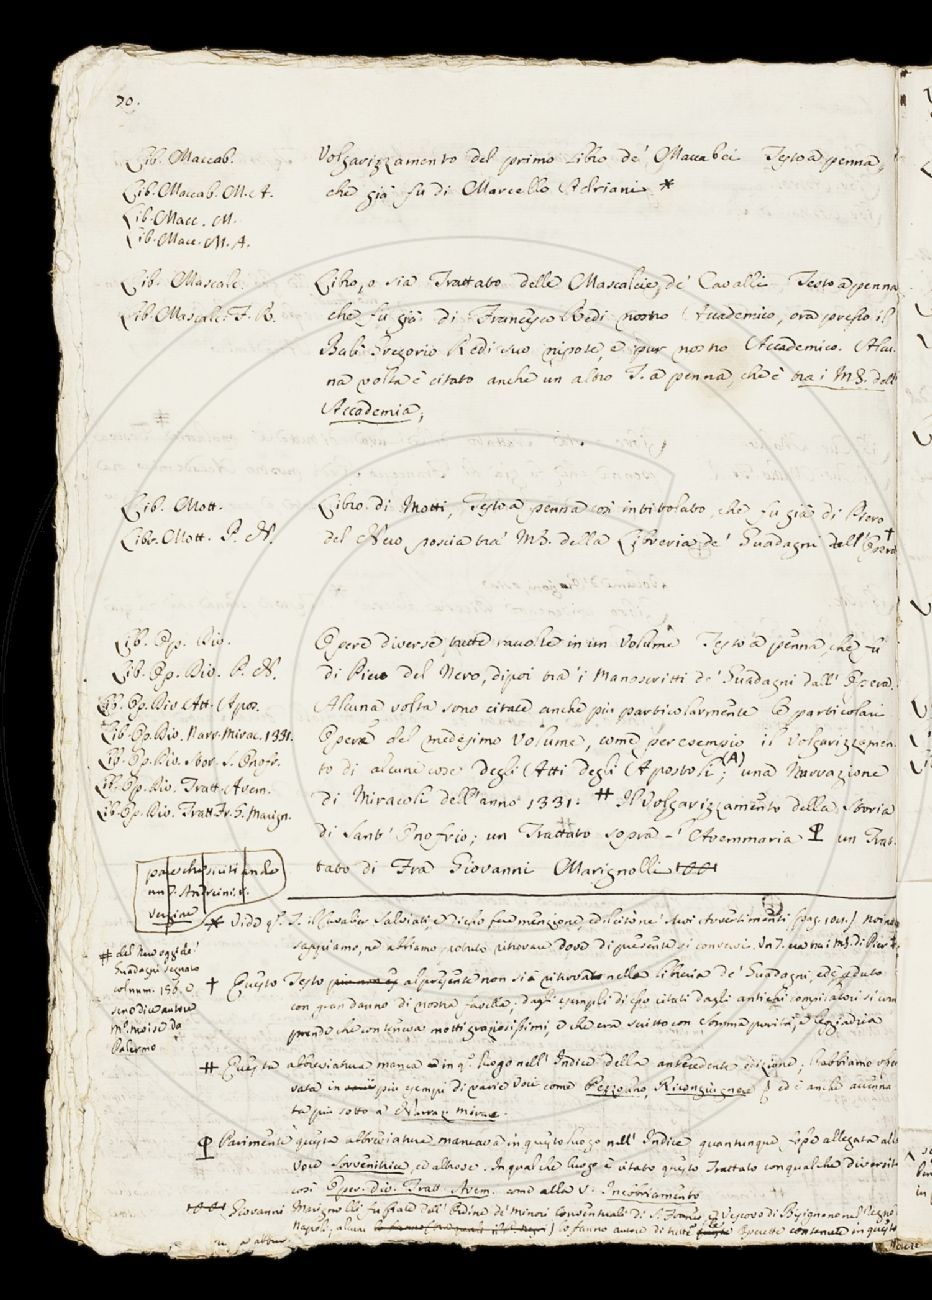 70.
Lib. Maccab.
Lib. Maccab. M. A.
Lib. Macc. M.
Lib. Macc. M. A.
Volgarizzamento del primo Libro de' Maccabei Testo a penna,
che già fu di Marcello Adriani *
Lib. Mascalc.
Lib. Mascalc. F. R.
Libro, o sia Trattato delle Mascalcie de' Cavalli Testo a penna
che fu già di Francesco Redi nostro Accademico, ora presso il
Balì Gregorio Redi suo nipote, e pur nostro Accademico. Alcu-
na volta è citato anche un altro T. a penna, che è tra i MS. dell'
Accademia;
Lib. Mott.
Libr. Mott. P. N.
Libro di Motti, Testo a penna così intitolato, che fu già di Piero
del Nero poscia tra' MS. della Libreria de' Guadagni dall'Opera †
Lib. Op. Div.
Lib. Op. Div. P. N.
Lib. Op. Div. Att. Apos.
Lib. Op. Div. Narr. Mirac. 1331.
Lib. Op. Div. Stor. S. Onofr.
Lib. Op. Div. Tratt. Avem.
Lib. Op. Div. Tratt. Fr. G. Marign.
Opere diverse, tutte raccolte in un Volume Testo a penna, che fu
di Piero del Nero, dipoi tra' i Manoscritti de' Guadagni dall' Opera.
Alcuna volta sono citate anche più particolarmente le particolari
Opere del medesimo Volume, come per esempio il Volgarizzamen-
to di alcune cose degli Atti degli Apostoli (A); una Narrazione
di Miracoli dell'anno 1331: # Il Volgarizzamento della Storia
di Sant' Onofrio; un Trattato sopra l' Avemmaria un Trat-
tato di Fra Giovanni Marignolli
* Vide q. T. il Cavalier Salviati, e di esso fece menzione, ne' suoi Avvertimenti (pag. 104.) noi non
sappiamo, né abbiamo potuto ritrovare dove di presente si conservi.
# del Nero oggi de'
Guadagni segnato
col num. 156. e
se ne dice autore
M. Moise da
Palermo
† Questo Testo al presente non si è ritrovato nella libreria de' Guadagni, ed è perduto
con gran danno di nostra favella; dagli esempli di esso citati dagli antichi compilatori si com
prende che conteneva motti graziosissimi, e che era scritto con somma purità, e leggiadria
# Questa abbreviatura manca in q. luogo nell' Indice della antecedente edizione; l'abbiamo
vata in più esempi di varie Voci come Pezzolano, Ricongiugnere ed è anche accenna
ta più sotto a Narraz. Mirac.
Parimente questa abbreviatura mancava in questo luogo nell' Indice quantunque sia allegata alla
Voce Sovvenitrice, ed altrove. In qualche luogo è citato questo Trattato con qualche diversità
così Oper. div. Tratt. Avem. come alla V. Incobbiamento
Giovanni Marignolli fu frate dell' Ordine de' Minori Conventuali di S. Franc. e Vescovo di Bisignano nel Regno
Napoli; alcuni lo fanno autore di tutte Operette contenute in questo